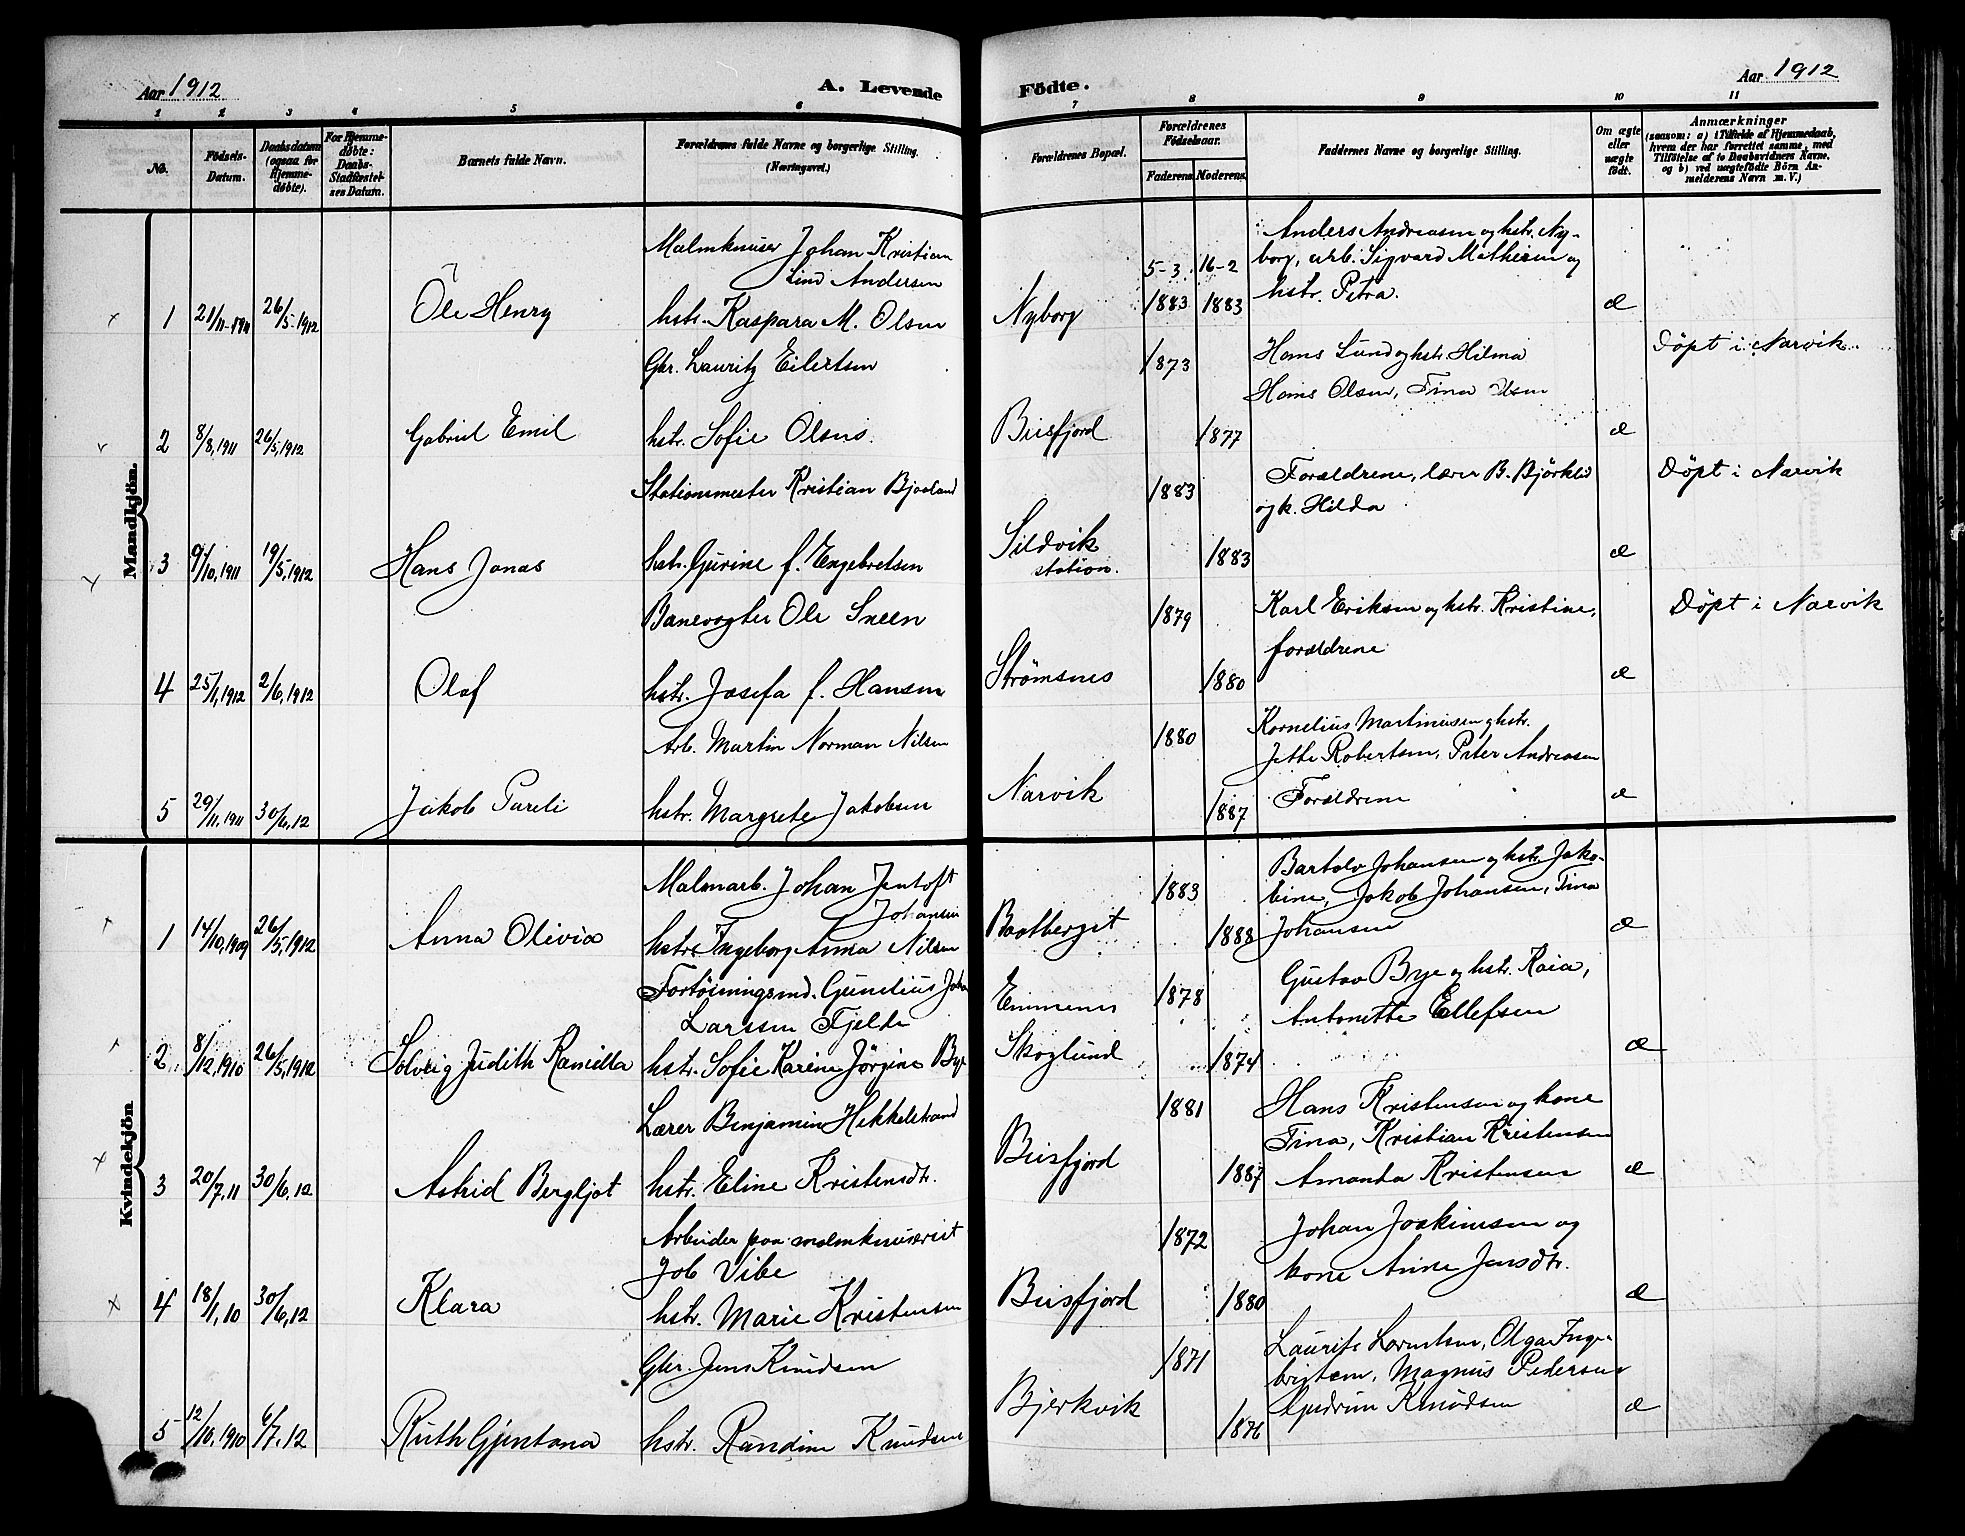 Aar 1912
A. Levende
1 2 3 4 5 6
No.
Fødsels-Datum.
Daabsdatum (ogsaa for Hjemme-døbte).
For Hjemme-døbte: Daabs-Stadfæstel-ses Datum.
Barnets fulde Navn.
Forældrenes fulde Navne og borgerlige Stilling.
(Næringsvei.)
Mandkjön.
Malmknuser Johan Kristian
Lind Andersen
1 21/11-1911 26/5-1912 Ole Henry hstr. Kaspara M. Olsen
Gbr. Lauritz Eilertsen
2 8/8, 1911 26/5, 1912 Gabriel Emil hstr. Sofie Olsns.
Stationsmester Kristian Bjaaland
3 9/10, 1911 19/5, 1912 Hans Jonas hstr. Gurine f. Engebretsen
Banevogter Ole Sneen
4 25/1, 1912 2/6, 1912 Olaf hstr. Josefa f. Hansen
Arb. Martin Norman Nilsen
5 29/11, 1911 30/6, 12 Jakob Pareli hstr. Margrete Jakobsen
Kvindekjön
Malmarb. Johan Jentoft
Johansen
1 14/10, 1909 26/5, 1912 Anna Olivia hstr. Ingeborg Anna Nilsen
Fortøiningsmd. Gunelius Joha
Larssen Fjelde
2 8/12, 1910 26/5, 1912 Solveig Judith Kamilla hstr. Sofie Karine Jørgine Bye
Lærer Benjamin Hekkelstrand
3 20/7, 11 30/6, 12 Astrid Bergljot hstr. Eline Kristensdtr.
Arbeider paa malmknuseriet
Job Vibe
4 18/1, 10 30/6, 12 Klara hstr. Marie Kristensen
Gbr. Jens Knudsen
5 12/10, 1910 6/7, 12 Ruth Gjentana hstr. Randine Knudsen
Födte.
Aar 1912
7 8 9 10 11
Forældrenes Bopæl.
Forældrenes Födselsaar.
Faderens Moderens
Faddernes Navne og borgerlige Stilling.
Om ægte eller uægte født.
Anmærkninger
(saasom: a) i Tilfælde af Hjemmedaab,
hvem der har forrettet samme, med
Tilføielse af to Daabsvidners Navne,
og b) ved uægtefødte Börn An-
melderens Navn m. V.)
Anders Andreasen og hstr. Ny-
5-3 16-2 borg, arb. Sigvard Mathisen og
Nyborg 1883 1883 hstr. Petra. æ
1873 Hans Lund og hstr. Hilma Döpt i Narvik.
Hans Olsen, Tina Olsen
Beisfjord 1877 æ
1883 Forældrene, lærer B. Björklid Döpt i Narvik
og k. Hilda
Sildvik
station. 1883 æ
1879 Karl Eriksen og hstr. Kristine, Döpt i Narvik
forældrene
Strømsnes 1880 æ
1880 Kornelius Martinusen og hstr.
Jette Robertsen, Peter Andreasen
Narvik 1887 Forældrene æ
1883 Bartolo Johansen og hstr. Jako-
bine, Jakob Johansen, Tina
Baatberget 1888 Johansen æ
Emmenes 1878 Gustav Bye og hstr. Kaia,
Antonette Ellefsen
Skoglund 1874 æ
1881 Hans Kristensen og kone
Tina, Kristian Kristensen
Beisfjord 1887 Amanda Kristensen æ
1872 Johan Joakimsen og
kone Anne Jensdtr.
Beisfjord 1880 æ
1871 Laurits Lorentsen, Olga Inge-
brigtsen, Magnus Pedersen
Bjerkvik 1876 Gudrun Knudsen æ